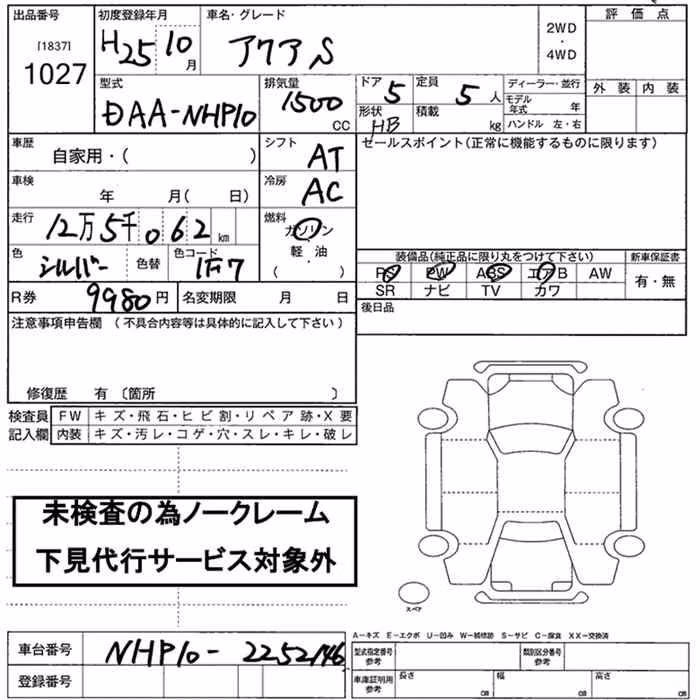 出品番号 初度登録年月 車名・グレード 評価点
[1837] H25 10月 アクア S 2WD・4WD
1027
型式 排気量 ドア 5 定員 5人 ディーラー・並行 外装 内装
DAA-NHP10 1500 CC 形状 HB 積載 kg モデル年式 年
ハンドル 左・右
車歴 自家用・( ) シフト AT セールスポイント(正常に機能するものに限ります)
車検 年 月( 日) 冷房 AC
走行 12万5千062km 燃料 ガソリン
軽・油
( )
色 シルバー 色替 色コード 1F7 装備品(純正品に限り丸をつけて下さい) 新車保証書
PS PW ABS エアB AW 有・無
SR ナビ TV カワ
R券 9980円 名変期限 月 日 後日品
注意事項申告欄 (不具合内容等は具体的に記入して下さい)
修復歴 有 〔箇所 〕
検査員 FW キズ・飛石・ヒビ割・リペア跡・X要
記入欄 内装 キズ・汚レ・コゲ・穴・スレ・キレ・破レ
未検査の為ノークレーム
下見代行サービス対象外
スペア
A-キズ E-エクボ U-凹み W-補修跡 S-サビ C-腐食 XX-交換済
車台番号 NHP10-2252146 型式指定番号 参考 類別区分番号 参考
登録番号 車庫証明用 参考 長さ cm 幅 cm 高さ cm